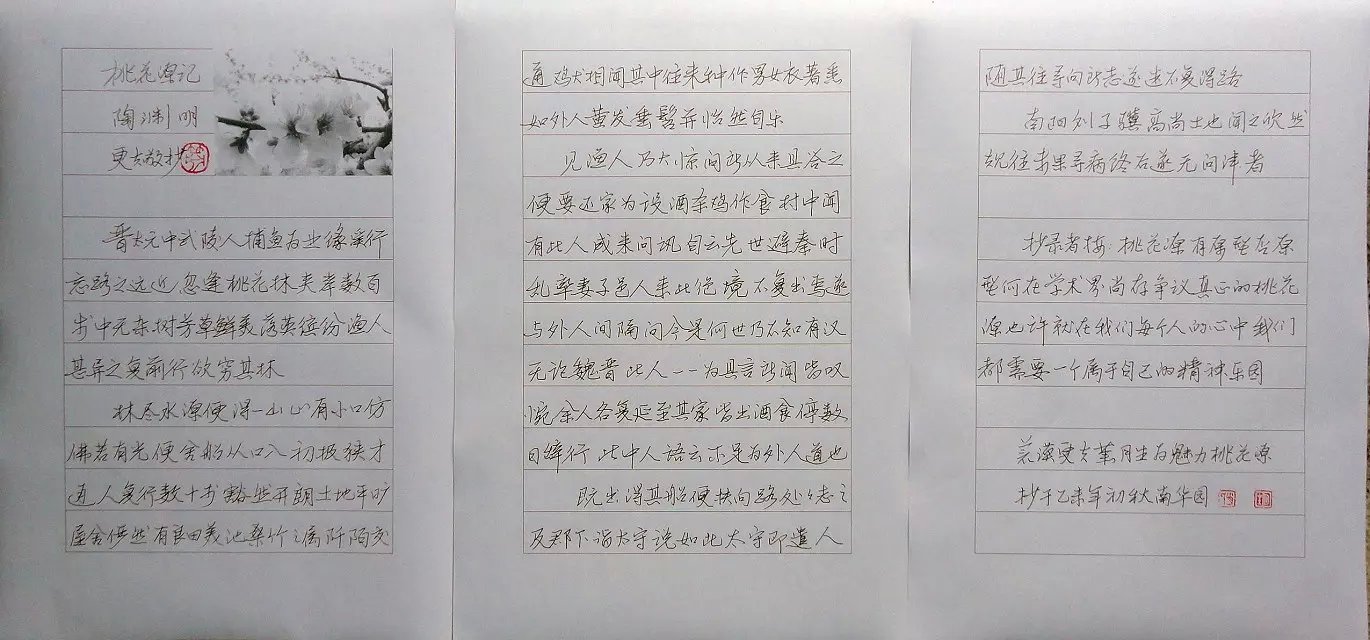 桃花源记
陶渊明
更夫敬抄
晋太元中武陵人捕鱼为业缘溪行
忘路之远近忽逢桃花林夹岸数百
步中无杂树芳草鲜美落英缤纷渔人
甚异之复前行欲穷其林
林尽水源便得一山山有小口仿
佛若有光便舍船从口入初极狭才
通人复行数十步豁然开朗土地平旷
屋舍俨然有良田美池桑竹之属阡陌交
通鸡犬相闻其中往来种作男女衣著悉
如外人黄发垂髫并怡然自乐
见渔人乃大惊问所从来具答之
便要还家为设酒杀鸡作食村中闻
有此人咸来问讯自云先世避秦时
乱率妻子邑人来此绝境不复出焉遂
与外人间隔问今是何世乃不知有汉
无论魏晋此人一一为具言所闻皆叹
惋余人各复延至其家皆出酒食停数
日辞行此中人语云不足为外人道也
既出得其船便扶向路处处志之
及郡下诣太守说如此太守即遣人
随其往寻向所志遂迷不复得路
南阳刘子骥高尚士也闻之欣然
规往未果寻病终后遂无问津者
抄录者按:桃花源有原型否原
型何在学术界尚存争议真正的桃花
源也许就在我们每个人的心中我们
都需要一个属于自己的精神乐园
更夫 月生为魅力桃花源
抄于乙未年初秋南华园